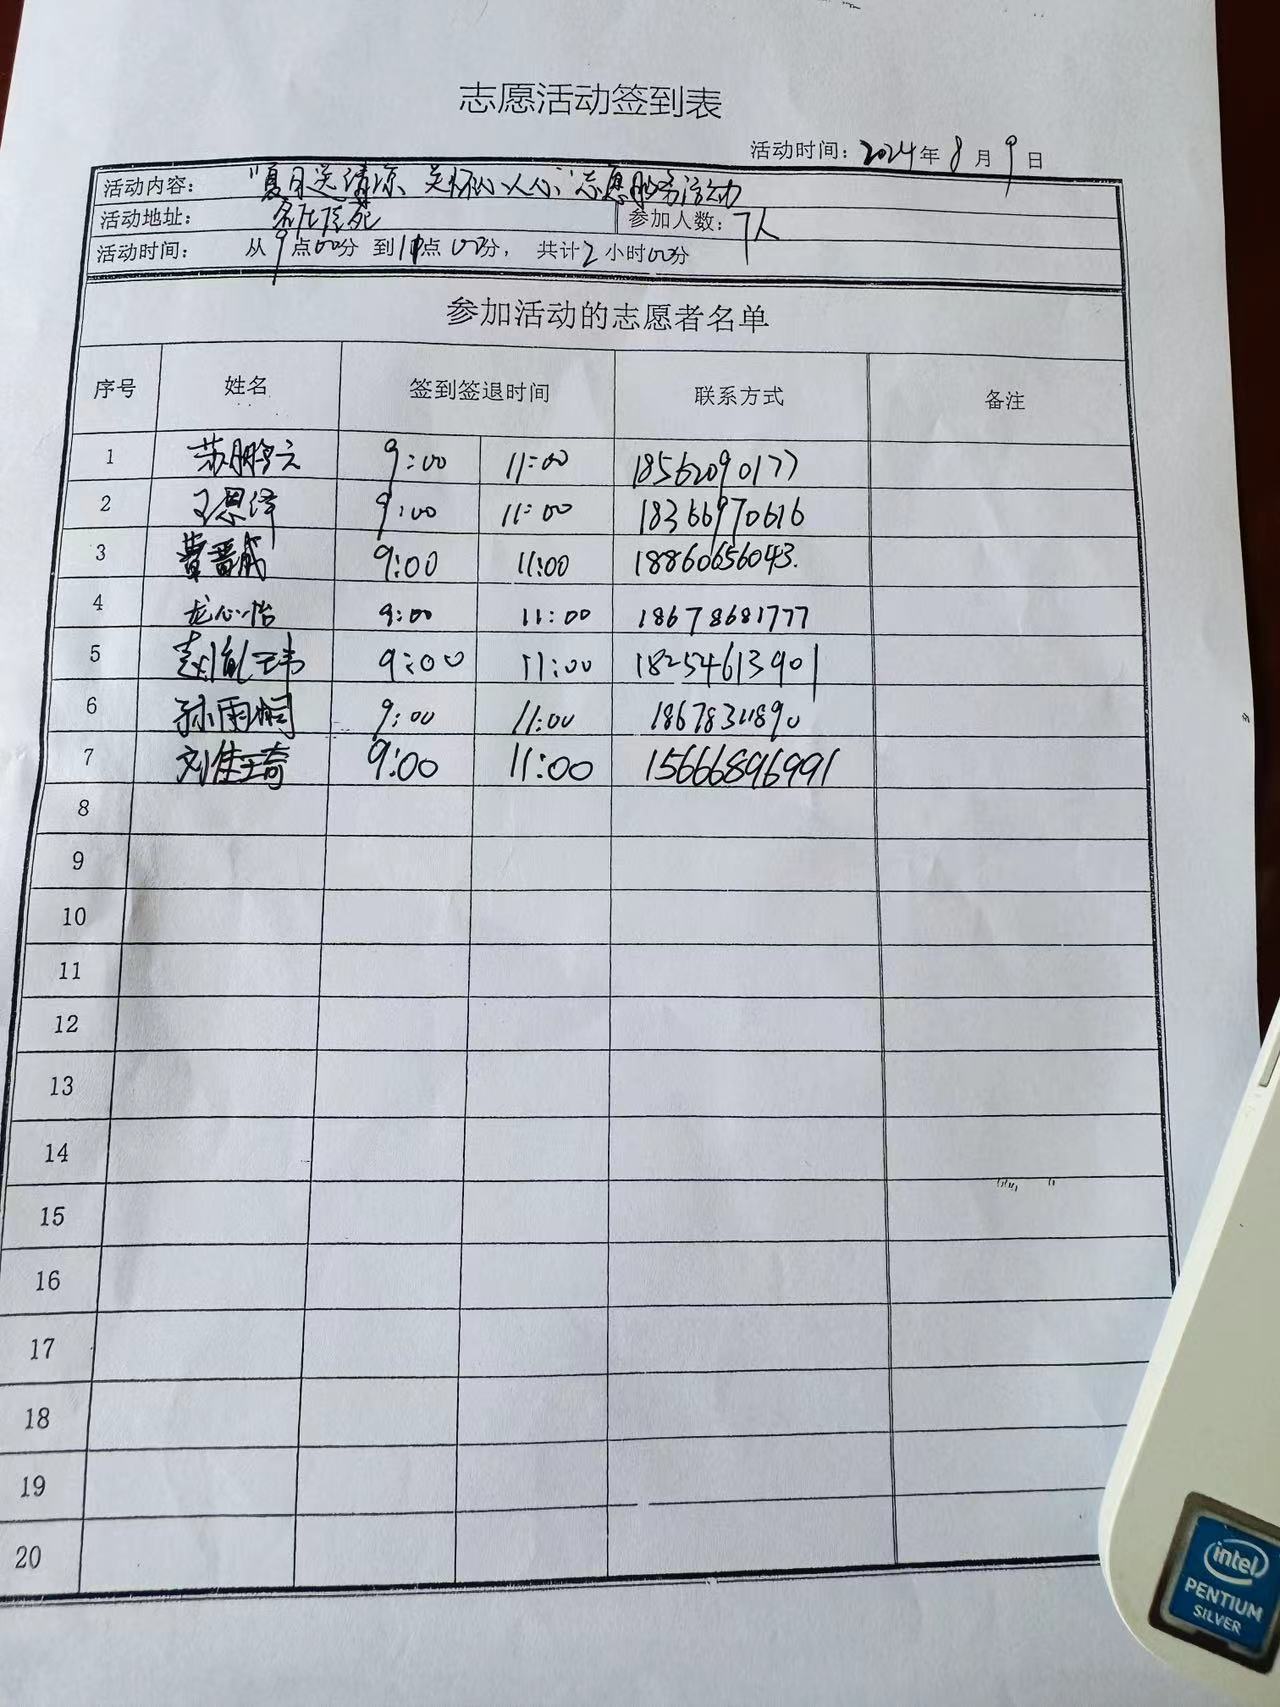 志愿活动签到表
活动时间：2024年8月9日
活动内容："夏日送清凉 关怀沁人心"志愿服务活动
活动地址： 参加人数：7人
活动时间： 从9点00分 到11点00分， 共计2小时00分
参加活动的志愿者名单
序号 姓名 签到签退时间 联系方式 备注
1 苏鹏云 9:00 11:00 18562090177
2 王恩泽 9:00 11:00 18366970616
3 曹晋威 9:00 11:00 18860656043.
4 龙心怡 9:00 11:00 18678681777
5 赵胤玮 9:00 11:00 18254613901
6 孙雨桐 9:00 11:00
7 刘佳琦 9:00 11:00 15666896991
8
9
10
11
12
13
14
15
16
17
18
19
20
intel
PENTIUM
SILVER